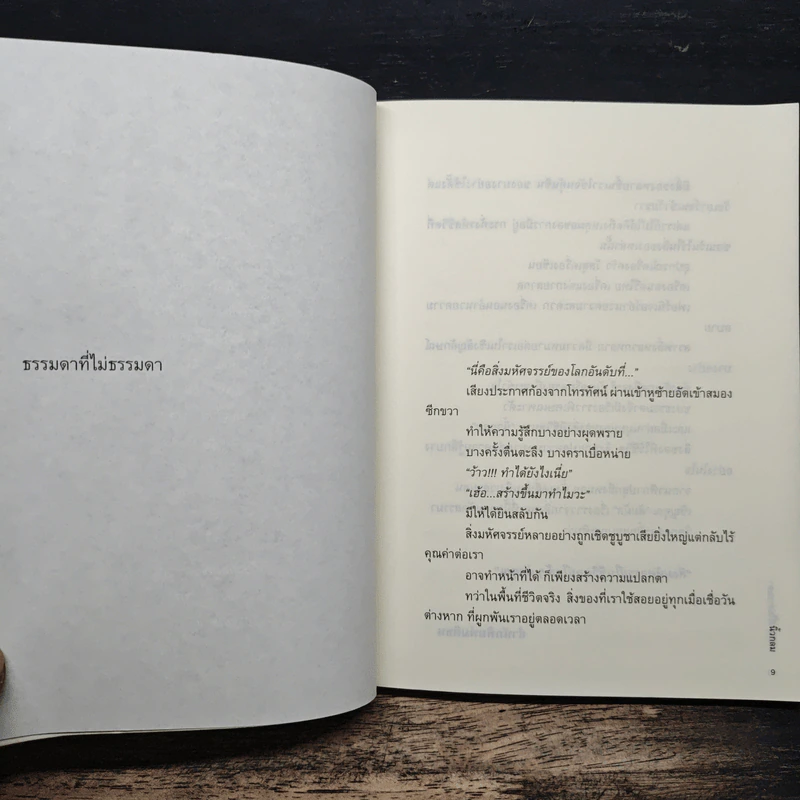 ธรรมดาที่ไม่ธรรมดา
"นี่คือสิ่งมหัศจรรย์ของโลกอันดับที่..."
เสียงประกาศก้องจากโทรทัศน์ ผ่านเข้าหูซ้ายอัดเข้าสมอง
ซีกขวา
ทำให้ความรู้สึกบางอย่างผุดพราย
บางครั้งตื่นตะลึง บางคราเบื่อหน่าย
"ว้าว!!! ทำได้ยังไงเนี่ย"
"เฮ้อ...สร้างขึ้นมาทำไมวะ"
มีให้ได้ยินสลับกัน
สิ่งมหัศจรรย์หลายอย่างถูกเชิดชูบูชาเสียยิ่งใหญ่แต่กลับไร้
คุณค่าต่อเรา
อาจทำหน้าที่ได้ ก็เพียงสร้างความแปลกตา
ทว่าในพื้นที่ชีวิตจริง สิ่งของที่เราใช้สอยอยู่ทุกเมื่อเชื่อวัน
ต่างหาก ที่ผูกพันเราอยู่ตลอดเวลา
นิ้วกลม
9